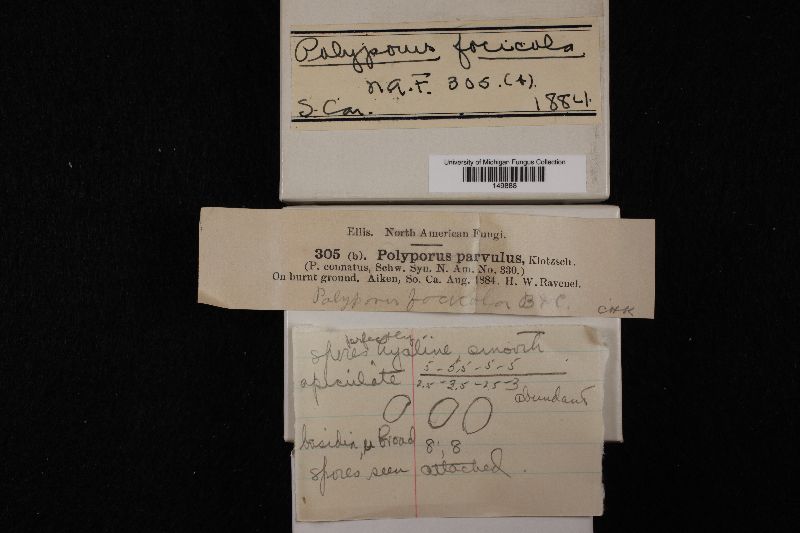 Polyporus focicola
N.A.F. 305. (+).
S. Car. 1884.
University of Michigan Fungus Collection
149888
Ellis. North American Fungi.
305 (b). Polyporus parvulus, Klotzsch.
(P. connatus, Schw. Syn. N. Am. No. 330.)
On burnt ground. Aiken, So. Ca. Aug. 1884. H. W. Ravenel.
Polyporus focicola B & C.
CHK
perfectly
spores hyaline, smooth
apiculate 5-5.5-5-5
2.5-3.5-2.5-3
abundant
basidia, μ broad 8; 8
spores seen attached.